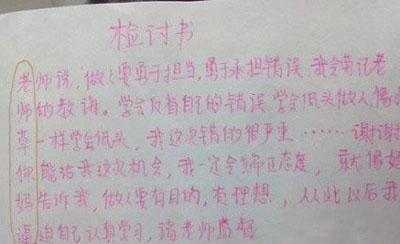 检讨书
老师说，做人要勇于担当，勇于承担错误，我会劳记老
师的教诲。学会反省自己的错误，学会低头做人，像小
草一样学会低头，我这次错的很严重……谢谢
你能给我这次机会，我一定会端正态度，就像妈
妈告诉我，做人要有目的，有理想，从此以后我
逼迫自己认真学习，请老师监督